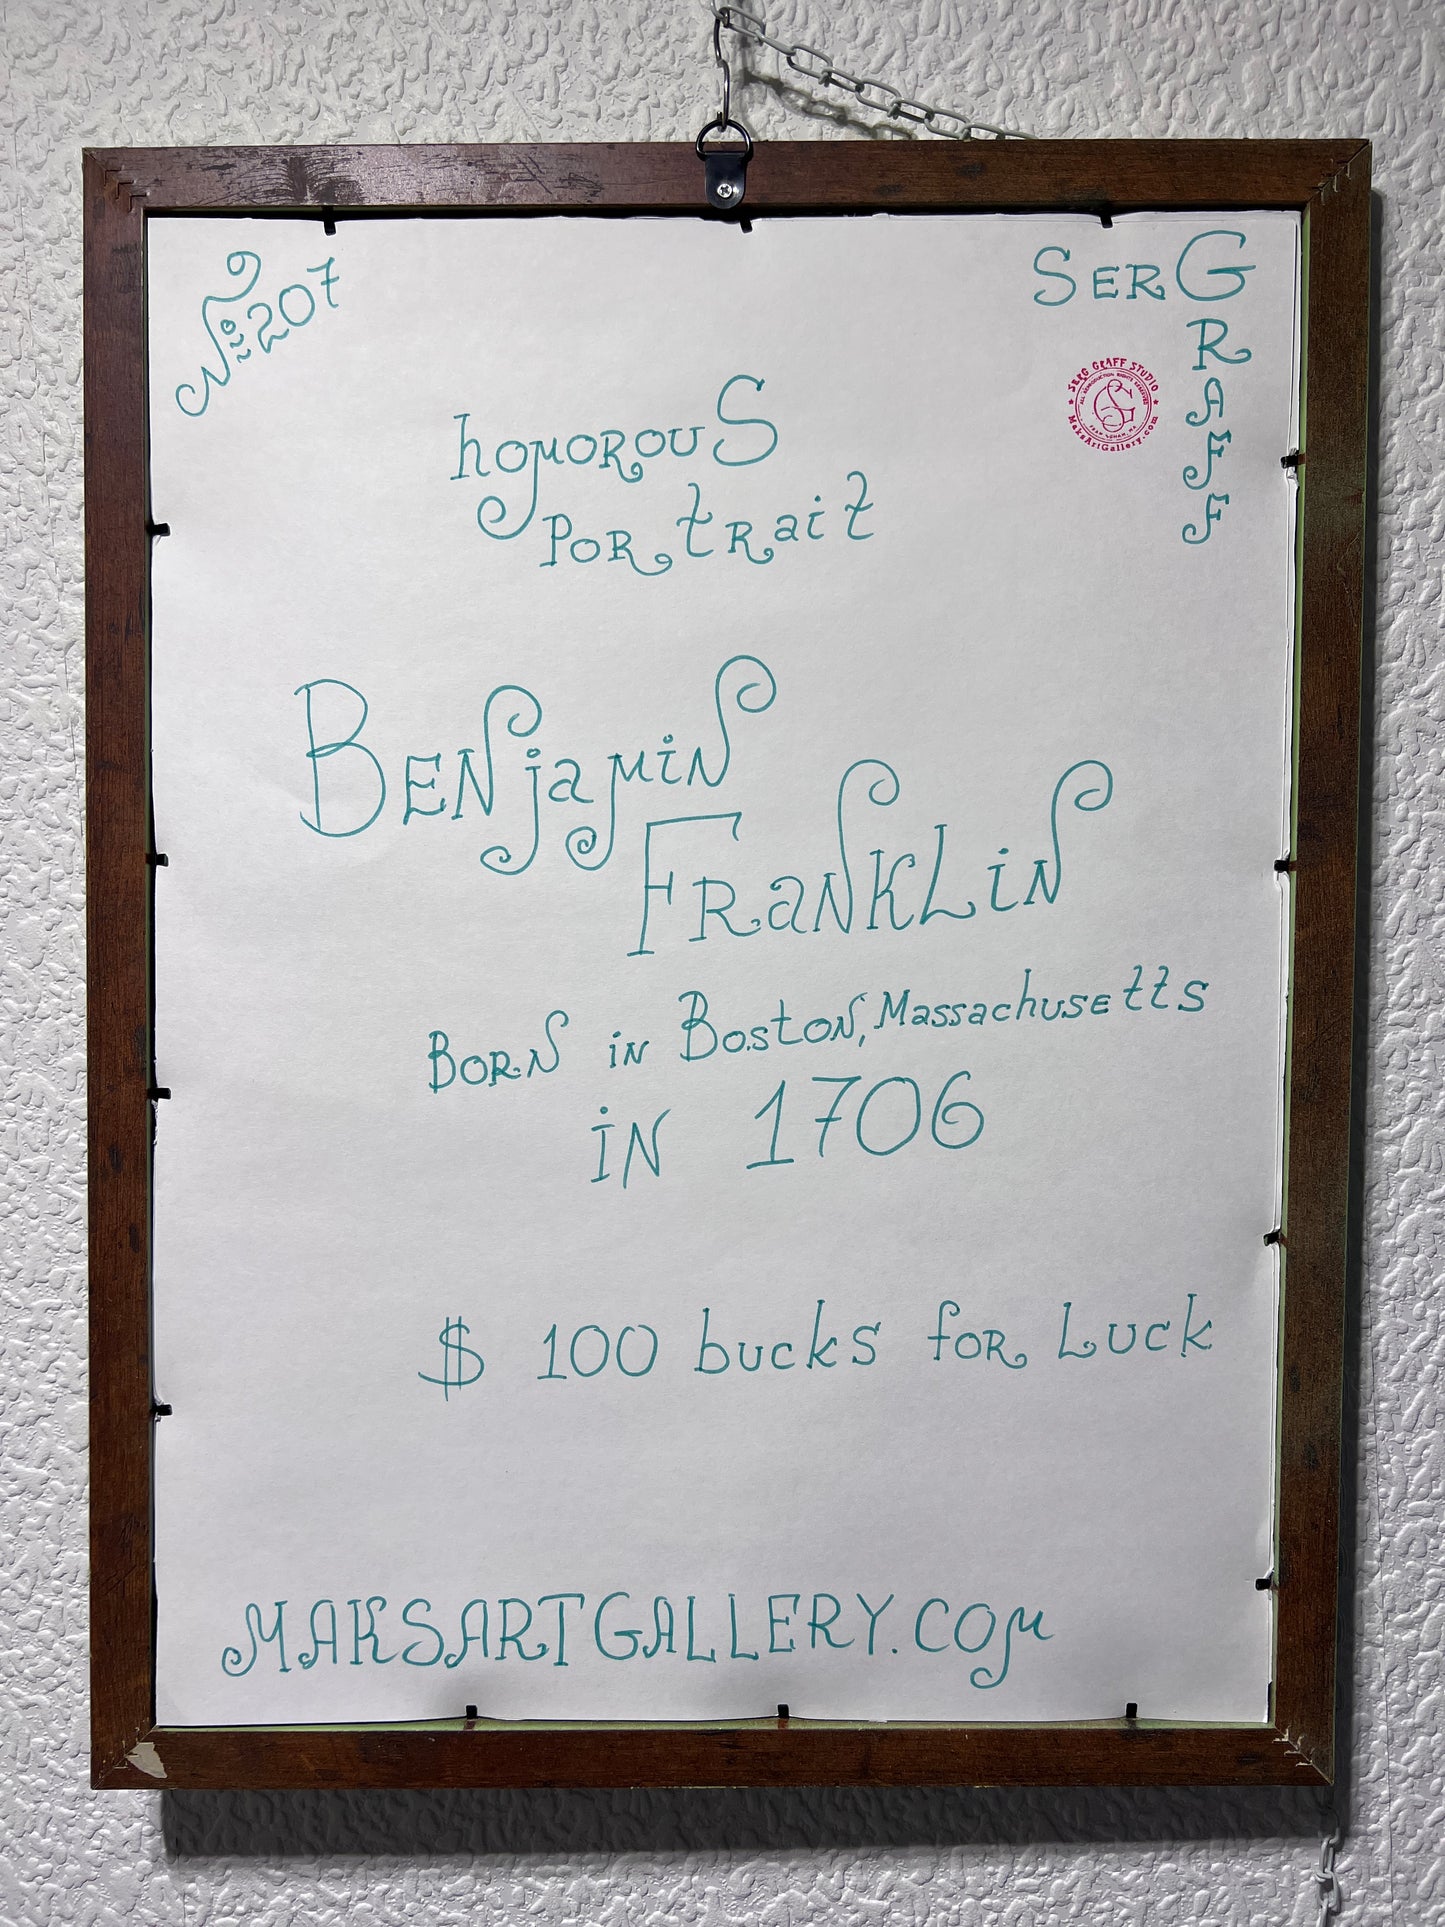 №207
SERG
GRAFF
SERG GRAFF STUDIO
ALL REPRODUCTION RIGHTS RESERVED
SG
MaksArtGallery.com
homorouS
PORtRait
BENjamiN
FRaNKLiN
BORN iN BostoN, Massachusetts
iN 1706
$ 100 bucks foR Luck
MAKSARTGALLERY.COM